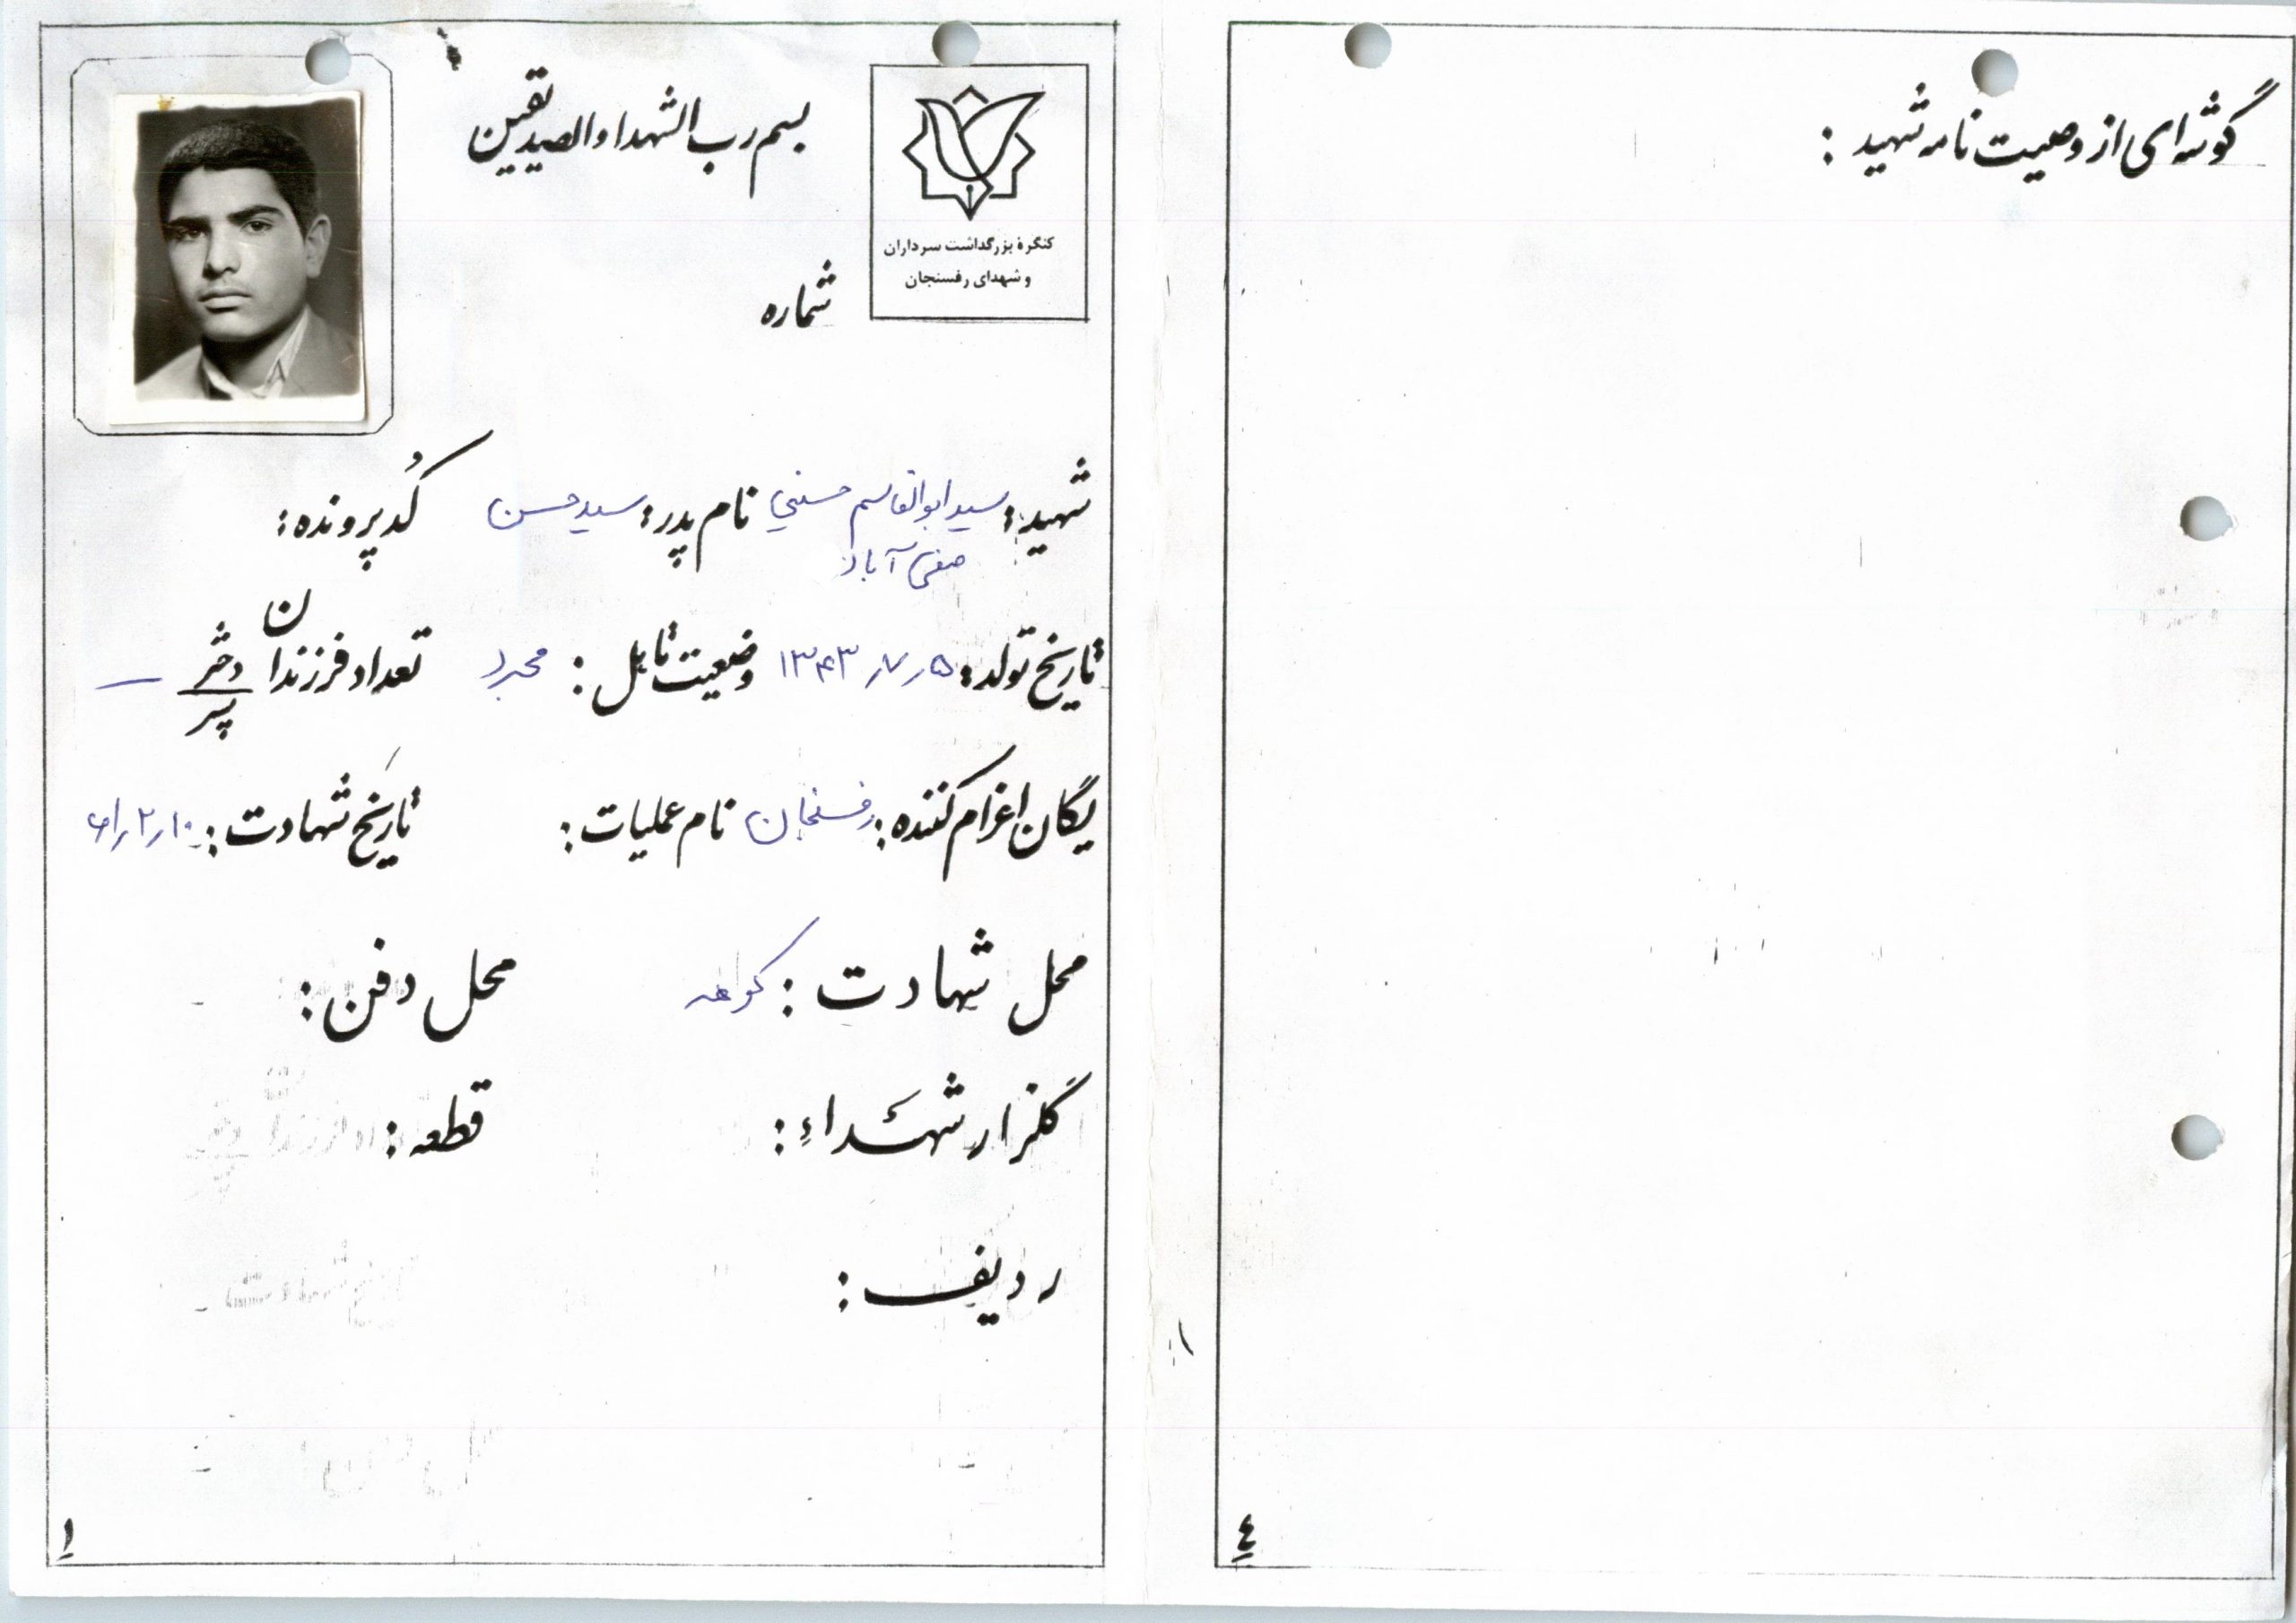 گوشه‌ای از وصیت نامه شهید :
٤
بسم رب الشهداء والصدیقین
کنگرهٔ بزرگداشت سرداران
و شهدای رفسنجان
شماره
شهید: سید ابوالقاسم حسینی نام پدر: سید حسن کُد پرونده:
صفی آباد
تاریخ تولد: ۱۳۴۳/۷/۵ وضعیت تاهل: مجرد تعداد فرزندان دختر —
پسر
یگان اعزام کننده: رفسنجان نام عملیات: تاریخ شهادت: ۶۱/۲/۱۰
محل شهادت: محل دفن:
گلزار شهداء: قطعه:
ردیف:
۱